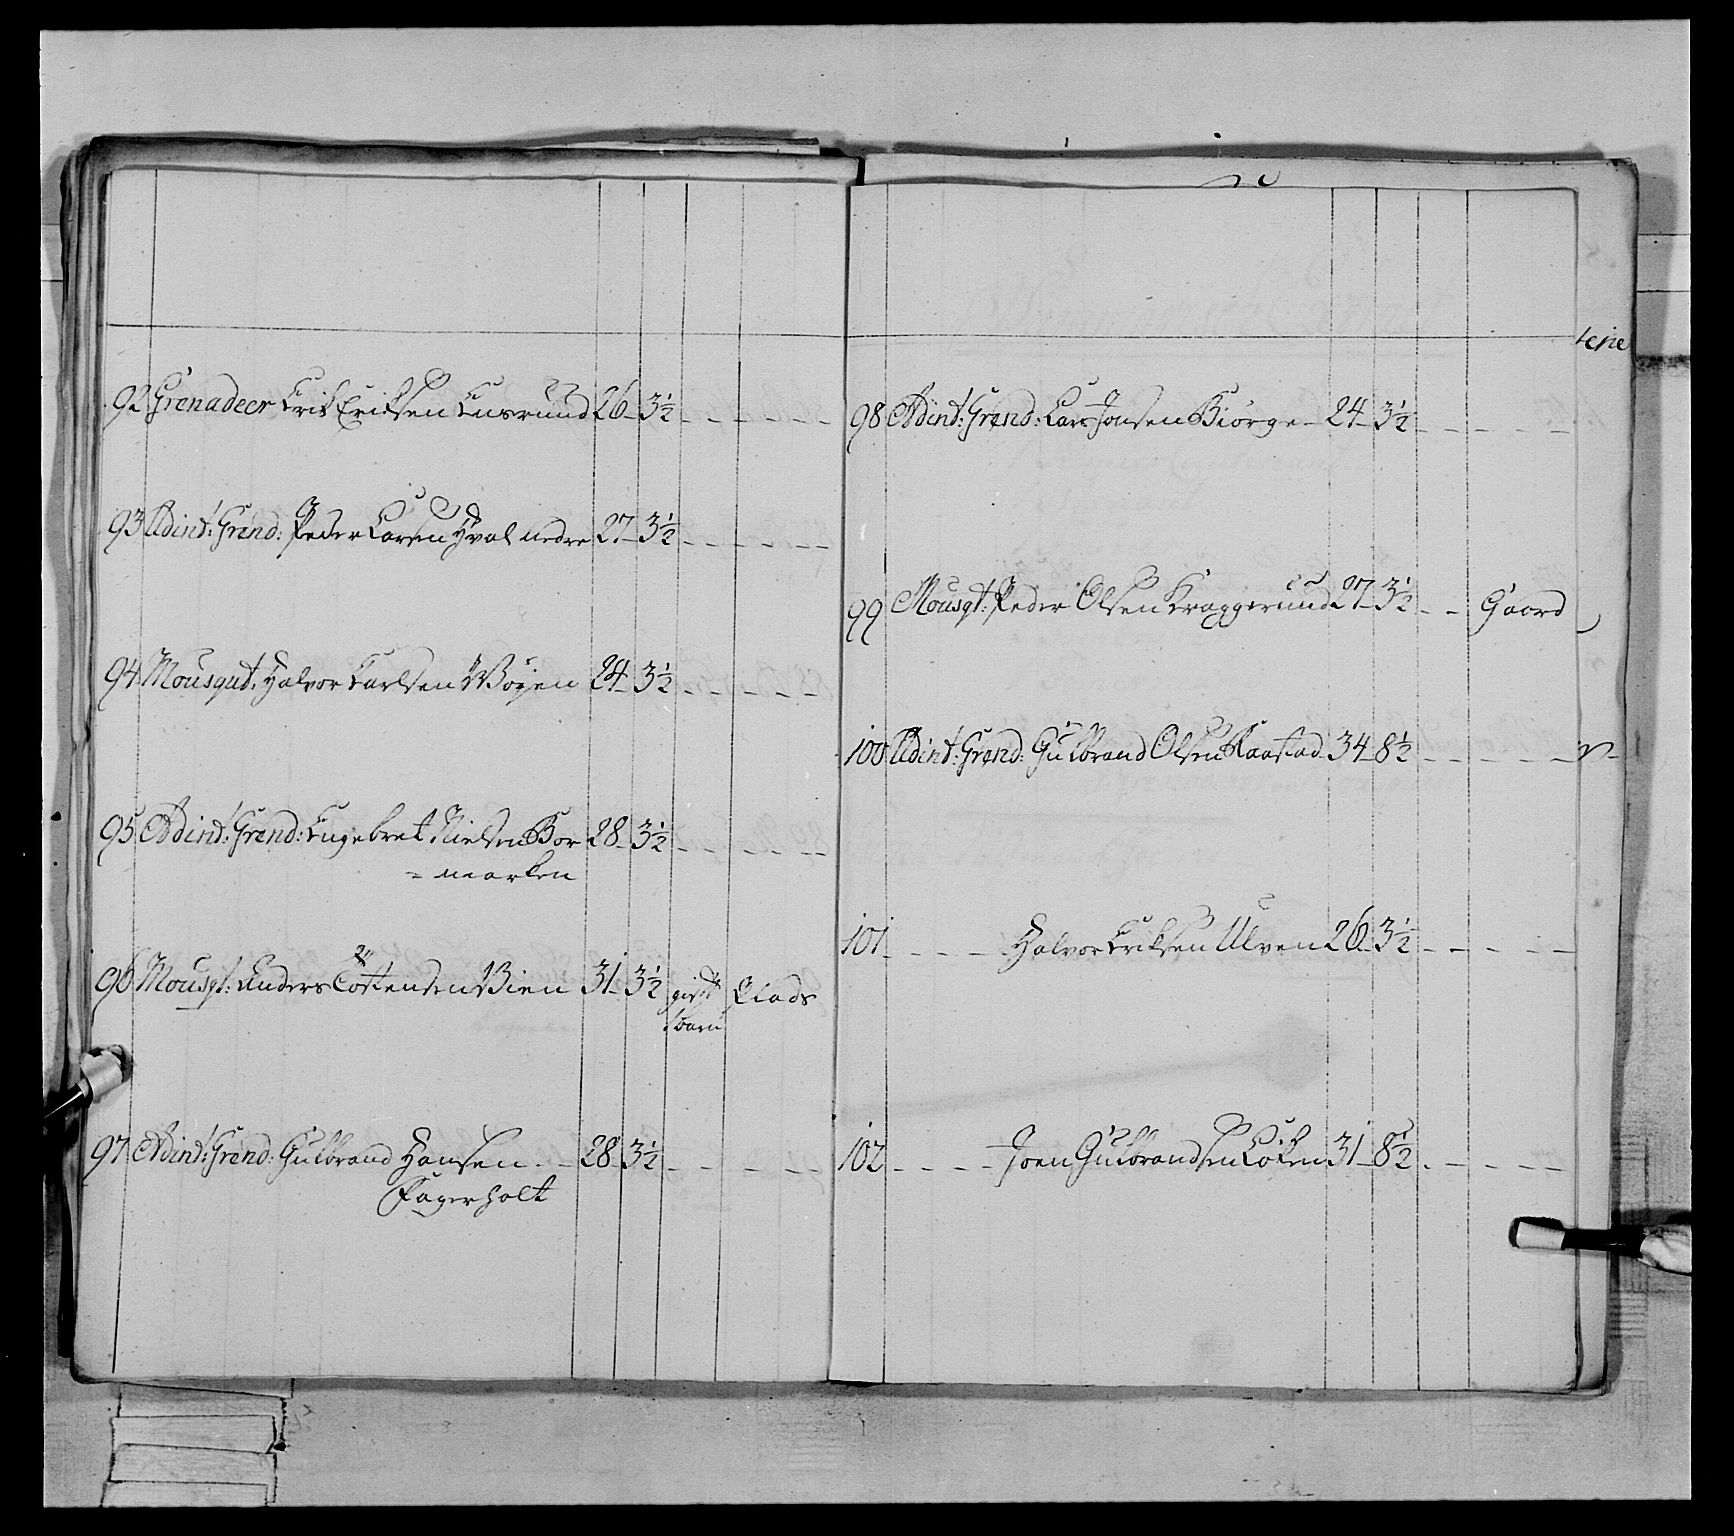 92 Grenadeer Erik Eriksen Lusrund 26 3½ - - - - - -
93 Adint: Grend: Peder Larsen Hval nedre 27 3½ - - - - - -
94 Mousqut: Halvor Carlsen Wøyen 24 3½ - - - - - -
95 Adint: Grend: Engebret Nielsen Bor 28 3½ - - - - - -
= marken
96 Mousqt: Anders Tostensen Bien 31 3½ gift Plads
1 barn
97 Adint: Grend: Gulbrand Hansen - - 28 3½ - - - - - -
Fagerholt
98 Adint: Grend: Lars Jonsen Biørge - 24 3½ - - - - - -
99 Mousqt: Peder Olsen Kraggerund 27 3½ - - Gaard
100 Adint: Grend: Gulbrand Olsen Raastad 34 8½ - - - - - -
101 - - - - Halvor Eriksen Ulven 26 3½ - - - - - -
102 - - - - Joen Gulbrandsen Løken 31 8½ - - - - - -